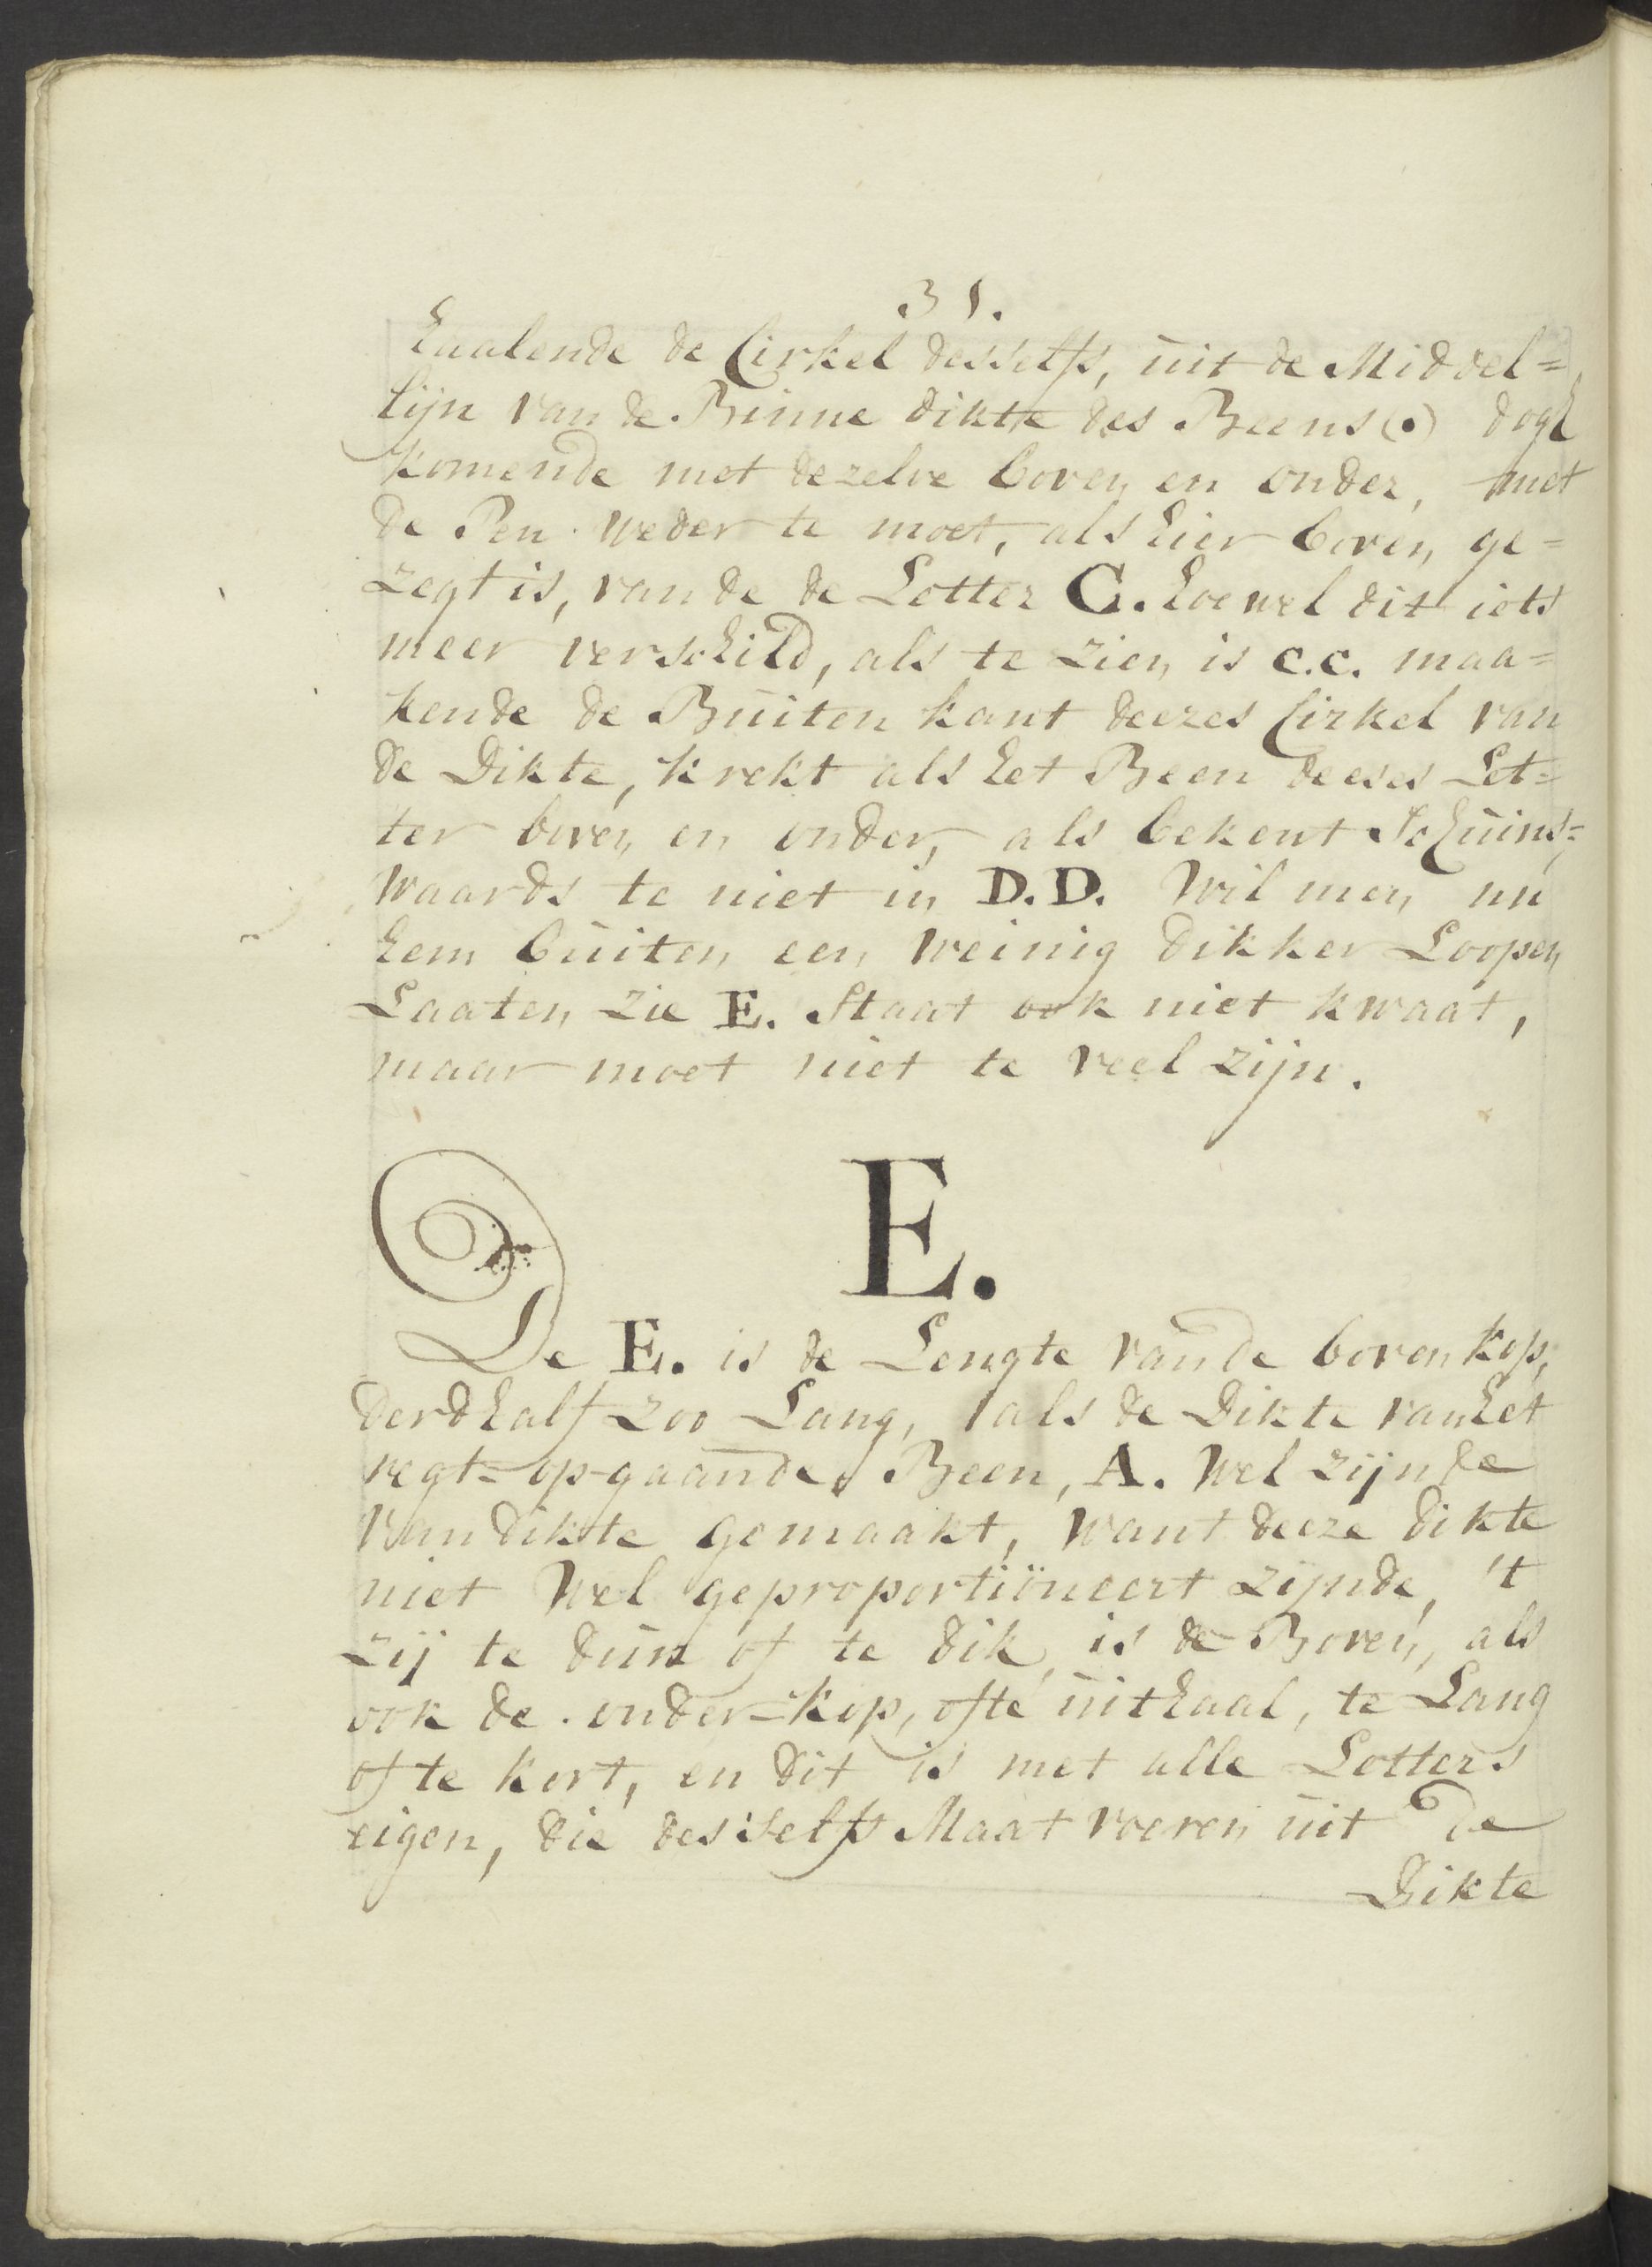 31.
haalende de Cirkel desselfs, uit de Middel=
lijn van de Binne dikte des Beens (.) dogh
komende met dezelve boven en onder, met
de Pen weder te moet, als hier boven ge=
zegt is, van de de Letter C. hoewel dit iets
meer verschild, als te zien is c.c. maa=
kende de Buiten kant deezes Cirkel van
de Dikte, krekt als het Been deeses Let=
ter boven en onder, als bekent Schuins=
waards te niet in D.D. Wil men nu
hem buiten een weinig dikker Loopen
Laaten zie E. Staat ook niet kwaat,
maar moet niet te veel zijn.
E.
De E. is de Lengte van de boven kop,
derdhalf zoo Lang, als de Dikte van het
regt=op-gaande Been, A. Wel zijnde
van dikte gemaakt, want deeze dikte
niet Wel geproportiöneert zijnde, 't
zij te dun of te dik, is de Boven, als
ook de onder=kop, ofte uithaal, te Lang
of te kort, en dit is met alle Letters
eigen, die desselfs Maat voeren uit de
Dikte